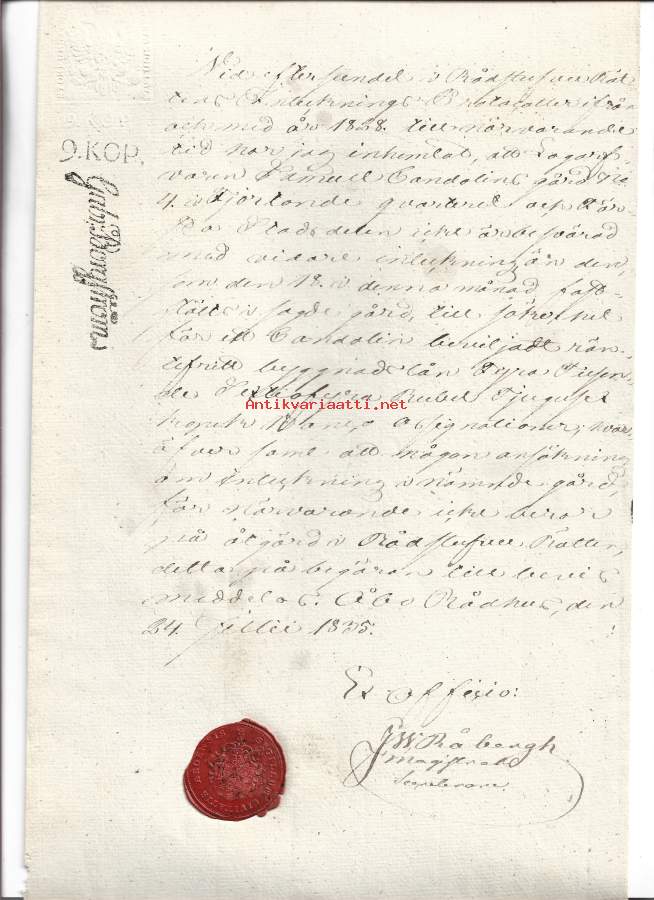 Vid efterseende i Rådstufvu Rät
tens Intecknings Protocoller ifrån
och med år 1828. till närvarande
9. KOP.
tid har jag inhemtat, att Logarf-
varen Samuel Candolins gård No
4. i Fjortonde quarteret och
Stads delen icke är besvärad
med vidare inteckning än den,
som den 18. i denna månad fast-
stälts i sagde gård, till säkerhet
för ett Candolin beviljadt rän-
tefritt byggnads lån Fyra Tusen-
de Sextiofyra Rubel Tjugu
kopek Banco Assignationer; hvar-
äfven samt att någon ansökning
om Inteckning i nämnde gård,
för närvarande icke beror
på åtgärd i Rådstufvu Rätten,
detta på begäran till bevis
meddelas. Åbo Rådhus, den
24. Julii 1835.
Ex officio:
JW Råbergh
Magistrats
Secreterare.
Antikvariaatti.net